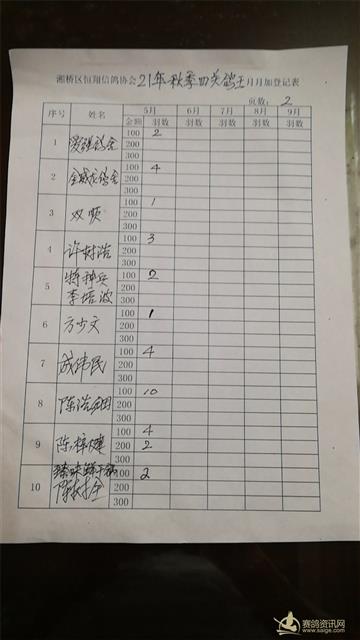 湘桥区恒翔信鸽协会21年秋季四关鸽王月月加登记表
页数: 2
序号 姓名 5月 6月 7月 8月 9月
金额 羽数 羽数 羽数 羽数 羽数
1 爱强鸽舍 100 2
200
300
2 金威龙鸽舍 100 4
200
300
3 双顺 100 1
200
300
4 许树浩 100 3
200
300
5 特种兵 100 2
李培波 200
300
6 方少文 100 1
200
300
7 成伟民 100 4
200
300
8 陈浩 100 10
200
300
9 陈梓健 100 4
200 2
300
10 100 2
200
300
赛鸽资讯网
www.saige.com